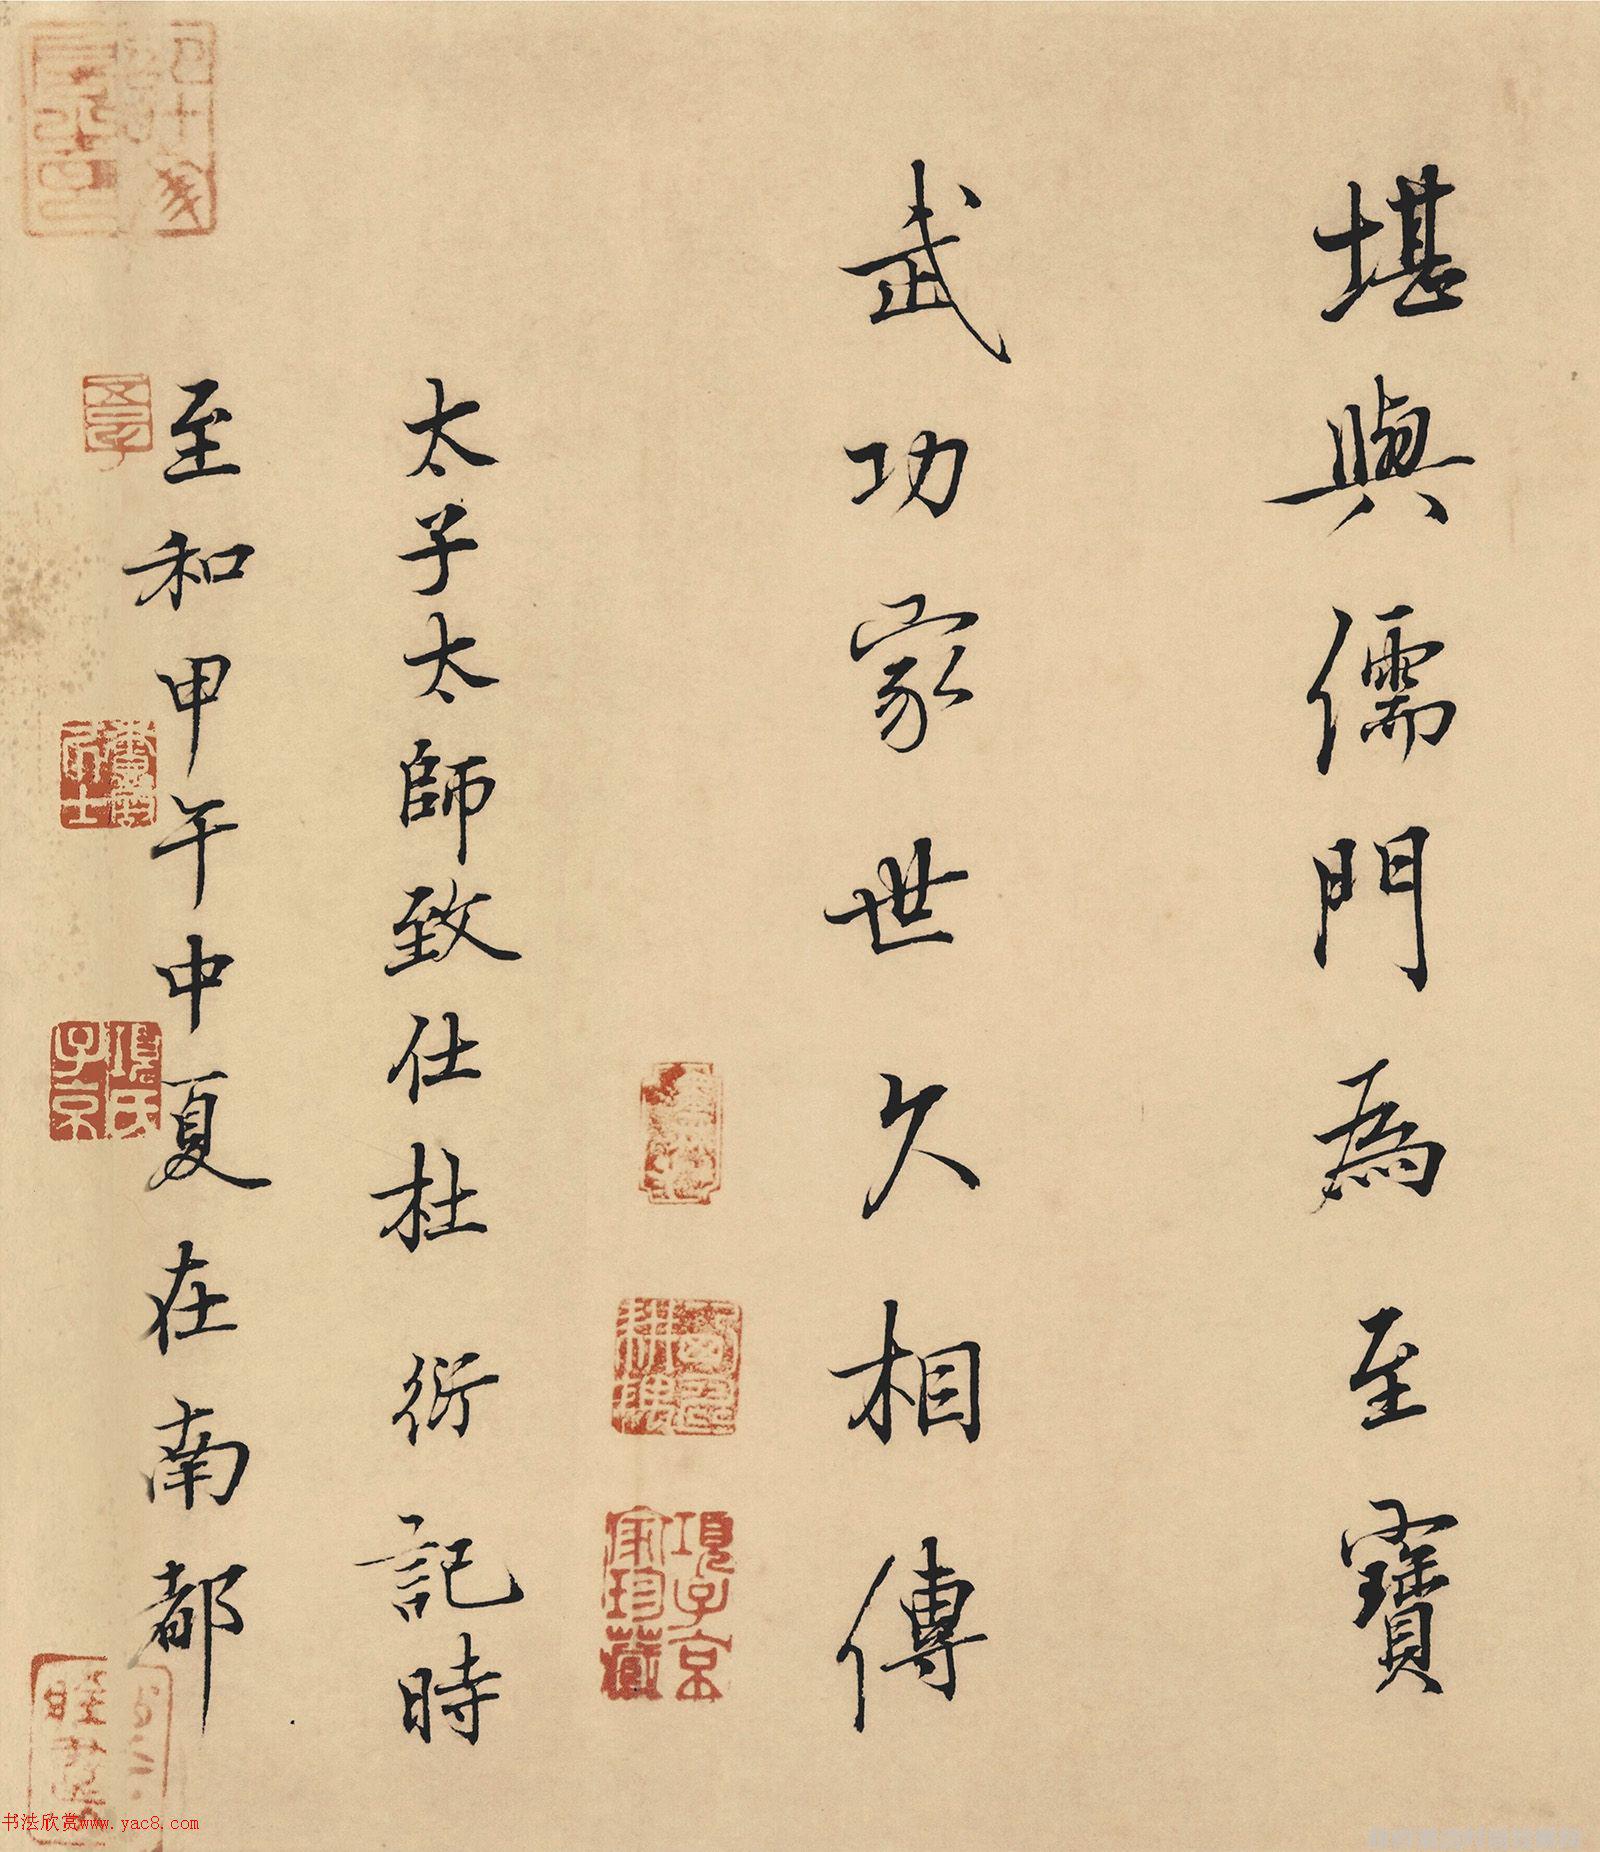 堪與儒門為至寶
武功家世久相傳
太子太師致仕杜衍記時
至和甲午中夏在南都
項子京家珍藏
項氏子京
书法欣赏www.yac8.com